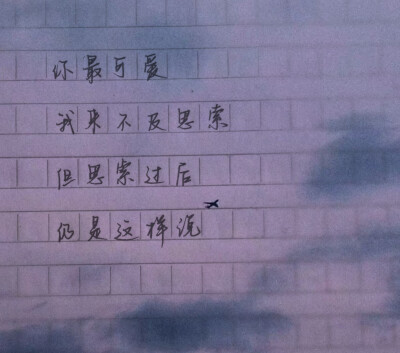 你最可爱
我来不及思索
但思索过后
仍是这样说